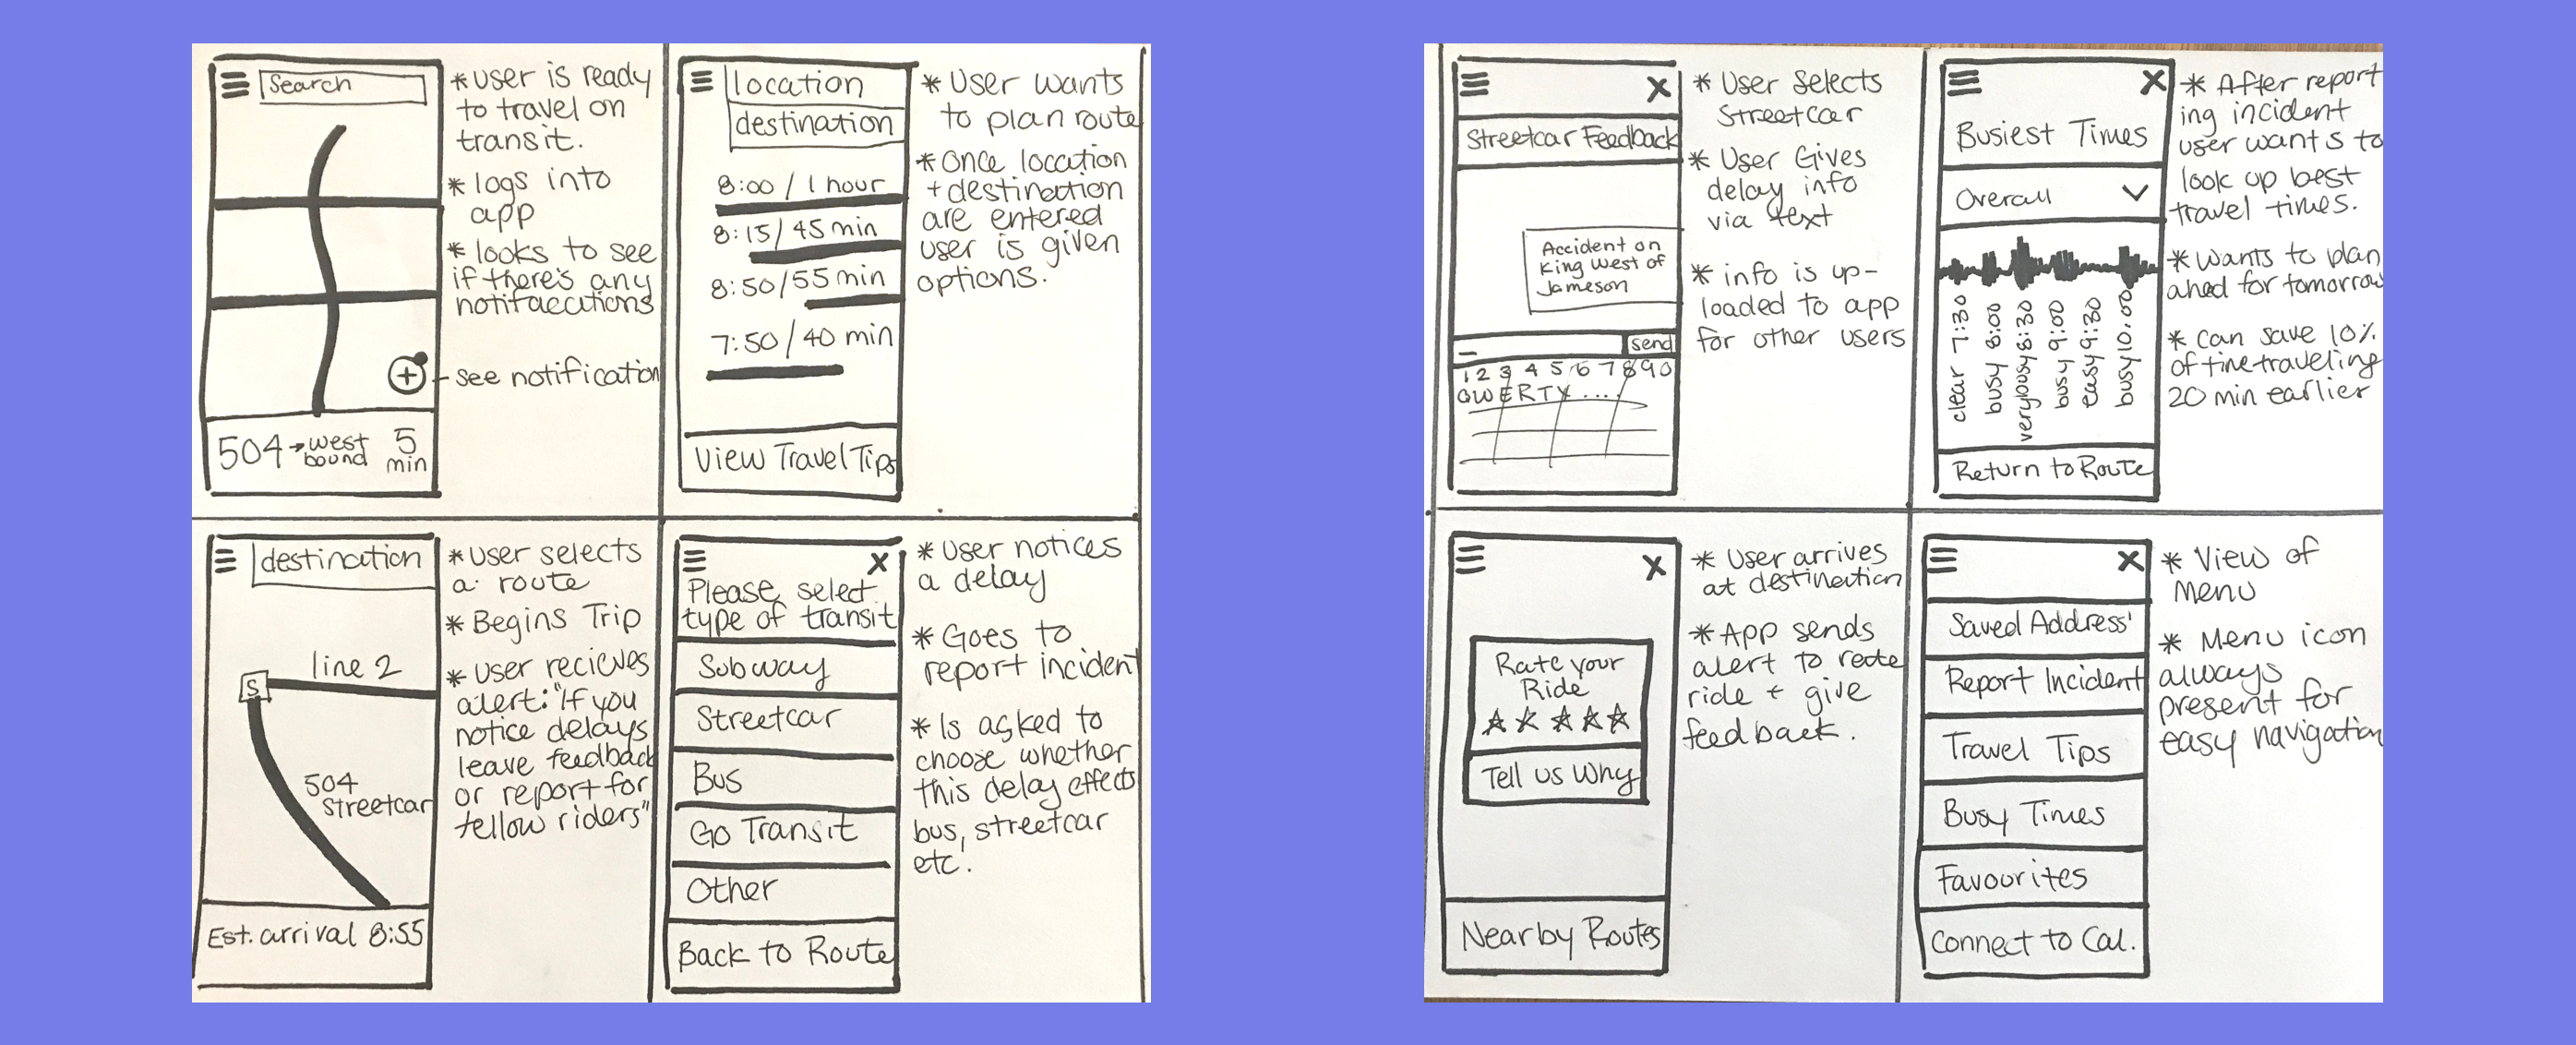 Search
504 → west
bound
5
min
* User is ready
to travel on
transit.
* logs into
app
* looks to see
if there's any
notifaecations
- see notification
location
destination
8:00 / 1 hour
8:15 / 45 min
8:50 / 55 min
7:50 / 40 min
View Travel Tips
* User wants
to plan route
* Once location
+ destination
are entered
user is given
options.
destination
line 2
S
504
Streetcar
Est. arrival 8:55
* User selects
a route
* Begins Trip
* User recieves
alert: "If you
notice delays
leave feedback
or report for
fellow riders"
X
Please select
type of transit
Subway
Streetcar
Bus
Go Transit
Other
Back to Route
* User notices
a delay
* Goes to
report incident
* Is asked to
choose whether
this delay effects
bus, streetcar
etc.
X
Streetcar Feedback
Accident on
King West of
Jameson
send
1 2 3 4 5 6 7 8 9 0
QWERTY....
* User selects
Streetcar
* User Gives
delay info
via text
* info is up-
loaded to app
for other users
X
Busiest Times
Overall
clear 7:30
busy 8:00
very busy 8:30
busy 9:00
easy 9:30
busy 10:00
Return to Route
* After report
ing incident
user wants to
look up best
travel times.
* Wants to plan
ahed for tomorrow
* can save 10%
of time traveling
20 min earlier
X
Rate your
Ride
Tell us Why
Nearby Routes
* User arrives
at destination
* App sends
alert to rate
ride + give
feedback.
X
Saved Address'
Report Incident
Travel Tips
Busy Times
Favourites
Connect to Cal.
* View of
Menu
* Menu icon
always
present for
easy navigation